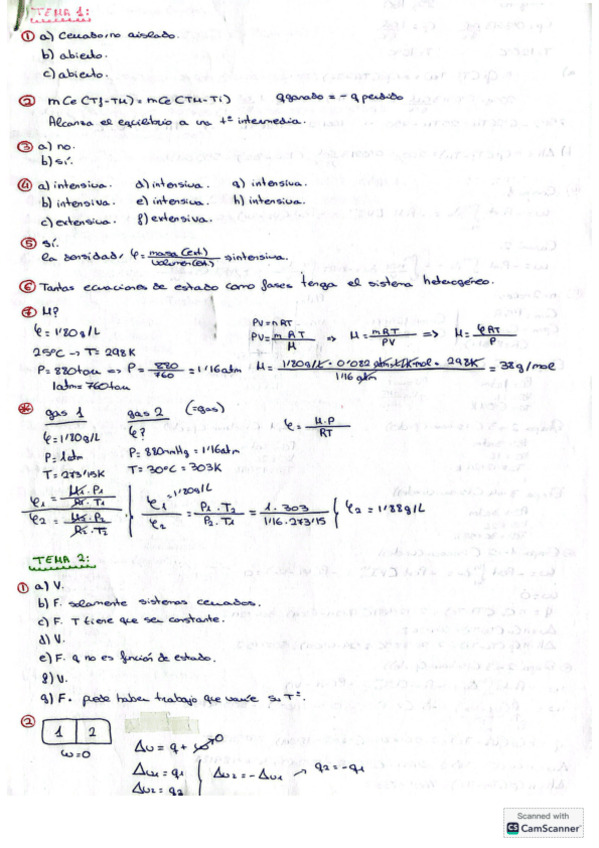 TEMA 1:
① a) Cerrado, no aislado.
b) abierto.
c) abierto.
② mCe (Tf-TM) = mCe (TM-Ti) qganado = - q perdido
Alcanza el equilibrio a una tª intermedia.
③ a) no.
b) sí.
④ a) intensiva. d) intensiva. g) intensiva.
b) intensiva. e) intensiva. h) intensiva.
c) extensiva. f) extensiva.
⑤ sí.
la densidad, φ = masa (ext) / volumen (ext) } intensiva.
⑥ Tantas ecuaciones de estado como fases tenga el sistema heterogéneo.
⑦ M?
φ = 1'80 g/L
PV = nRT
25ºC → T = 298K
PV = m R T / M ⇒ M = mRT / PV ⇒ M = φRT / P
P = 880 torr ⇒ P = 880 / 760 = 1'16 atm
M = 1'80 g/L · 0'082 atm·L/K·mol · 298K / 1'16 atm = 38 g/mol
1atm = 760 torr
gas 1 gas 2 (=gas)
φ = 1'80 g/L φ? φ = M·P / RT
P = 1 atm P = 880 mmHg = 1'16 atm
T = 273'15K T = 30ºC = 303K
φ1 = M·P1 / R·T1
φ2 = M·P2 / R·T2
φ1 = 1'80 g/L / φ2 = P1·T2 / P2·T1 = 1·303 / 1'16·273'15 { φ2 = 1'88 g/L
TEMA 2:
① a) V.
b) F. solamente sistemas cerrados.
c) F. T tiene que ser constante.
d) V.
e) F. q no es función de estado.
f) V.
g) F. puede haber trabajo que varíe su Tª.
② 1 2
w=0
ΔU = q + w → 0
ΔU1 = q1
ΔU2 = q2
{ ΔU2 = - ΔU1 → q2 = -q1
Scanned with
CS CamScanner